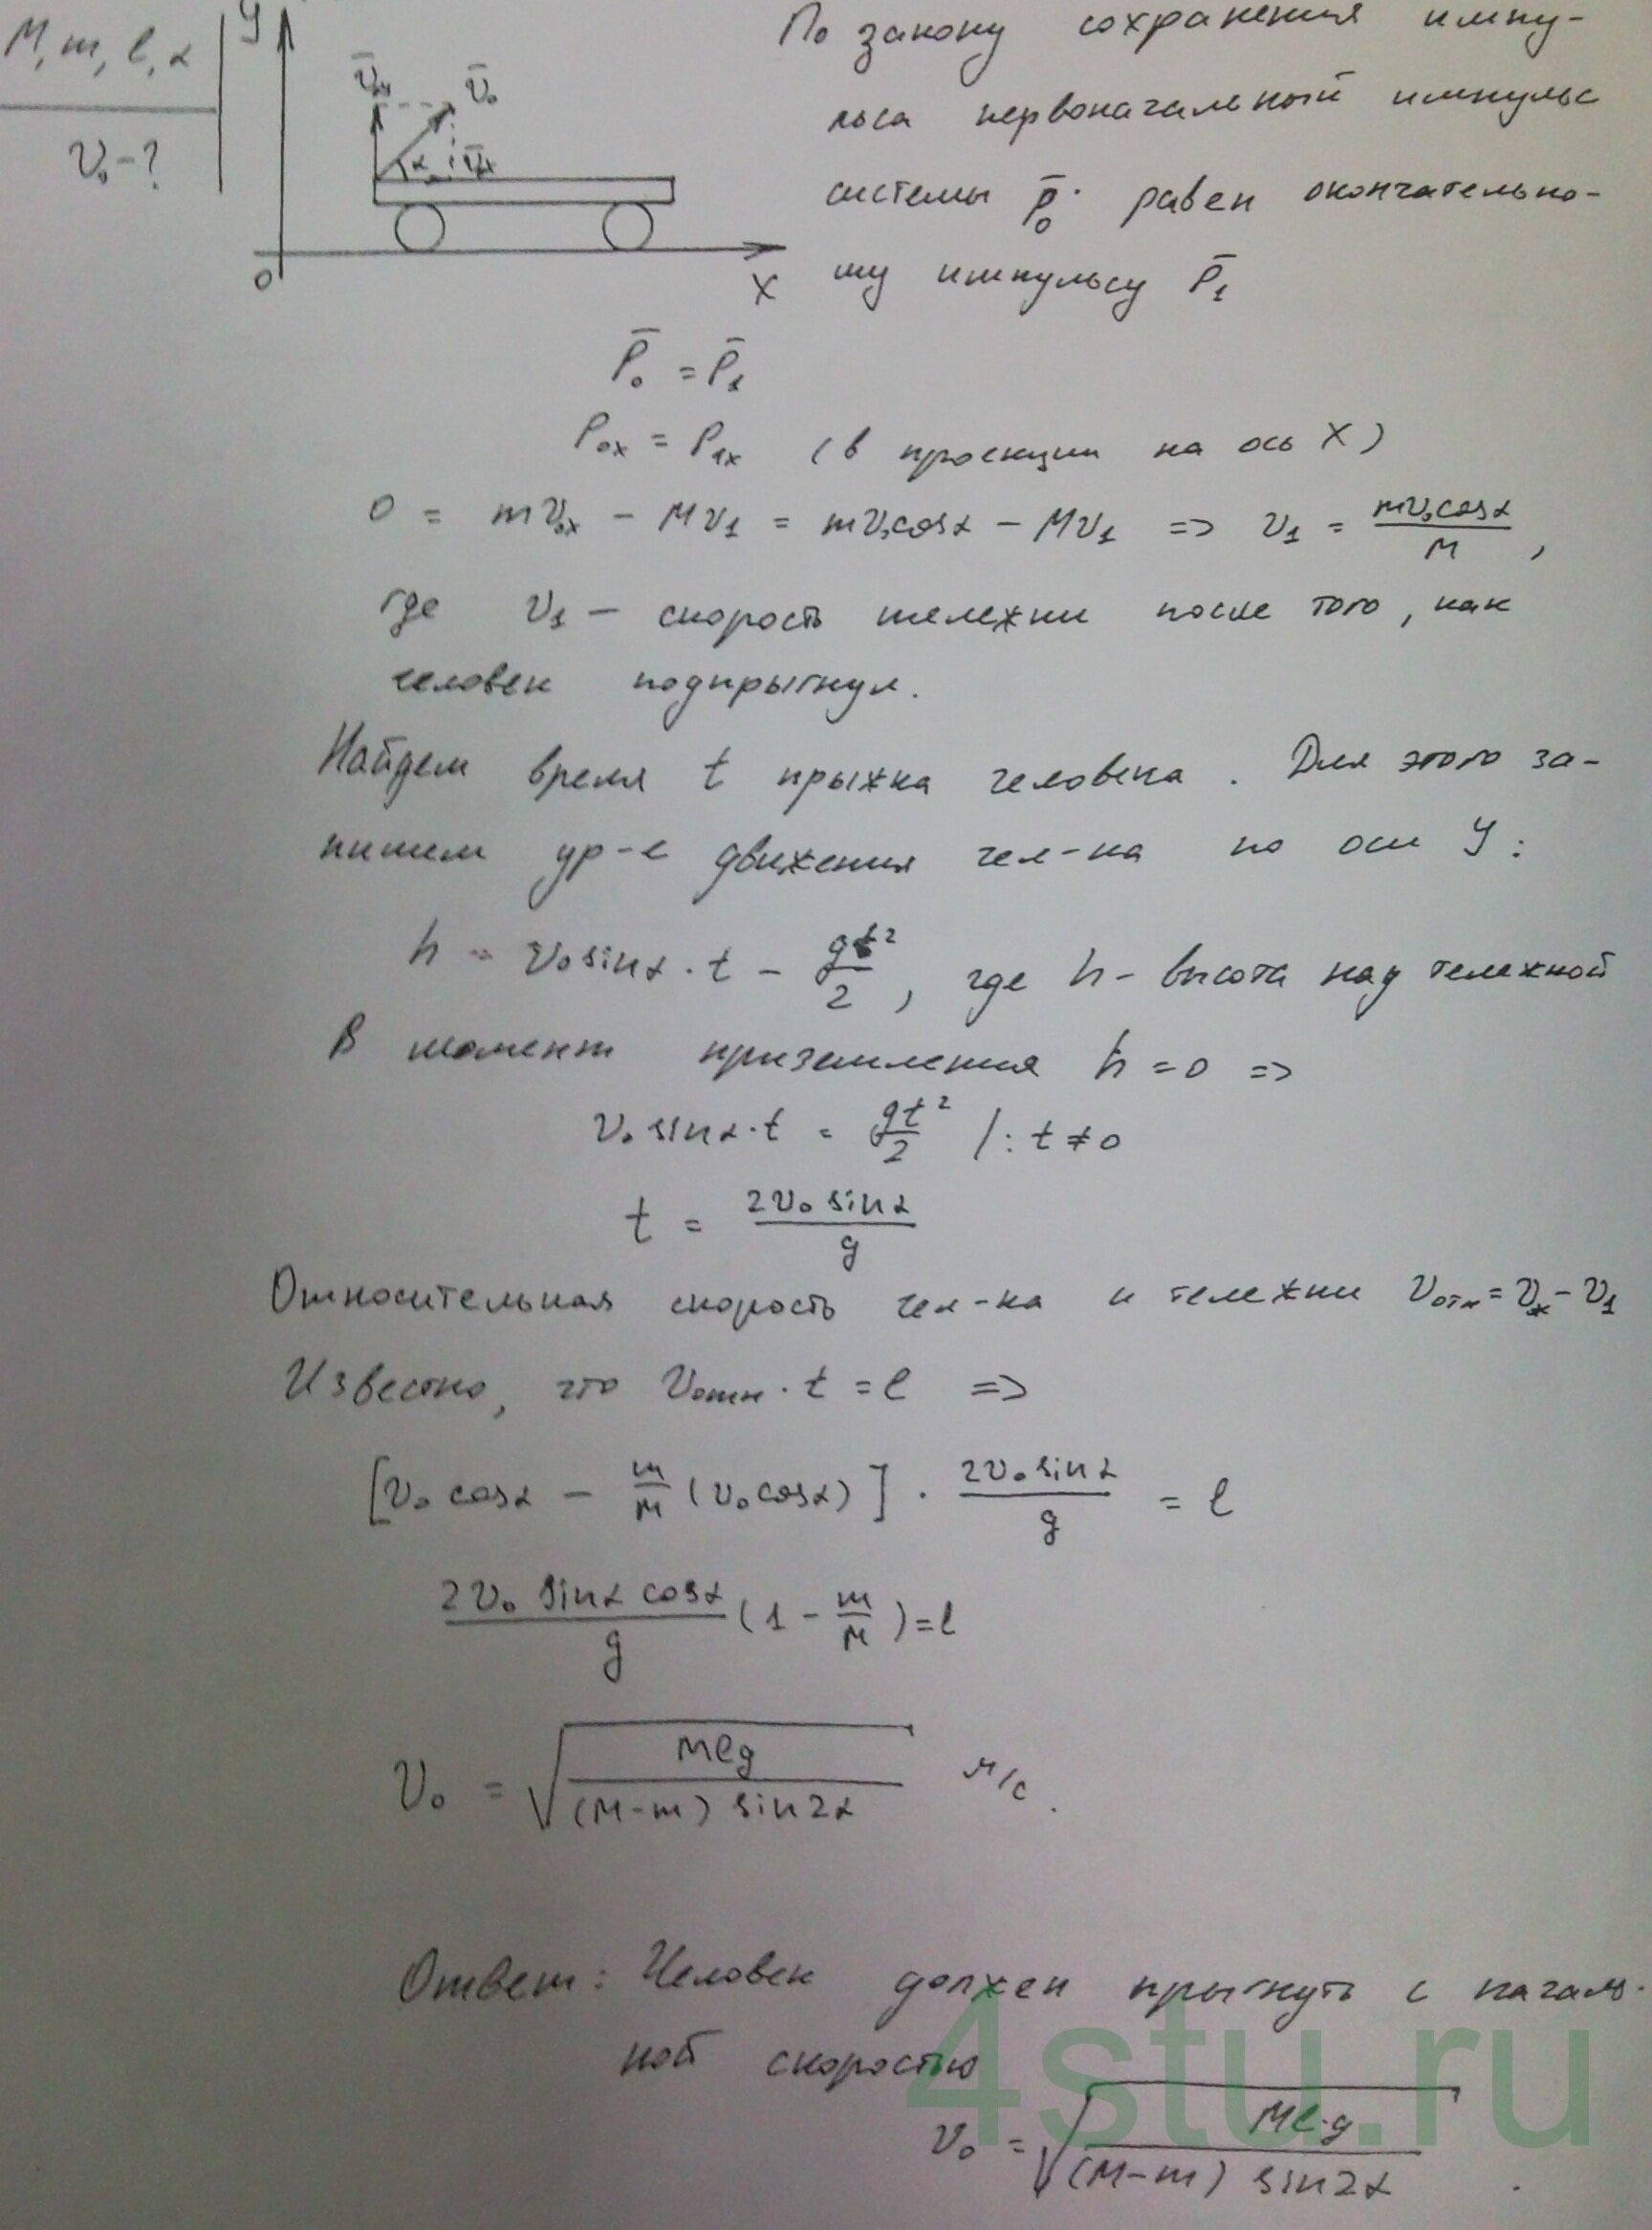 M, m, l, α
V₀ - ?
y
V̄y
V̄₀
α
V̄x
0
x
По закону сохранения импу-
льса первоначальный импульс
системы p̄₀ равен окончательно-
му импульсу P̄₁
P̄₀ = P̄₁
P₀ₓ = P₁ₓ (в проекции на ось X)
0 = mV₀ₓ - MV₁ = mV₀cosα - MV₁ => V₁ = mV₀cosα / M ,
где V₁ – скорость тележки после того, как
человек подпрыгнул.
Найдем время t прыжка человека. Для этого за-
пишем ур-е движения чел-ка по оси Y:
h = V₀sinα·t - gt²/2 , где h - высота над тележкой
В момент приземления h = 0 =>
V₀ sinα·t = gt²/2 |: t ≠ 0
t = 2V₀ sinα / g
Относительная скорость чел-ка и тележки Vотн = Vₓ - V₁
Известно, что Vотн · t = l =>
[V₀ cosα - m/M (V₀cosα)] · 2V₀ sinα / g = l
2V₀ sinα cosα / g (1 - m/M) = l
V₀ = √(Mlg / (M-m) sin2α) м/с.
Ответ: Человек должен прыгнуть с началь-
ной скоростью
V₀ = √(Ml·g / (M-m) sin2α) .
4stu.ru